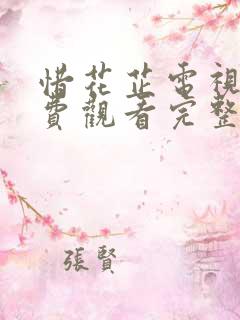 惜花芷電視
費觀看完整
張賢